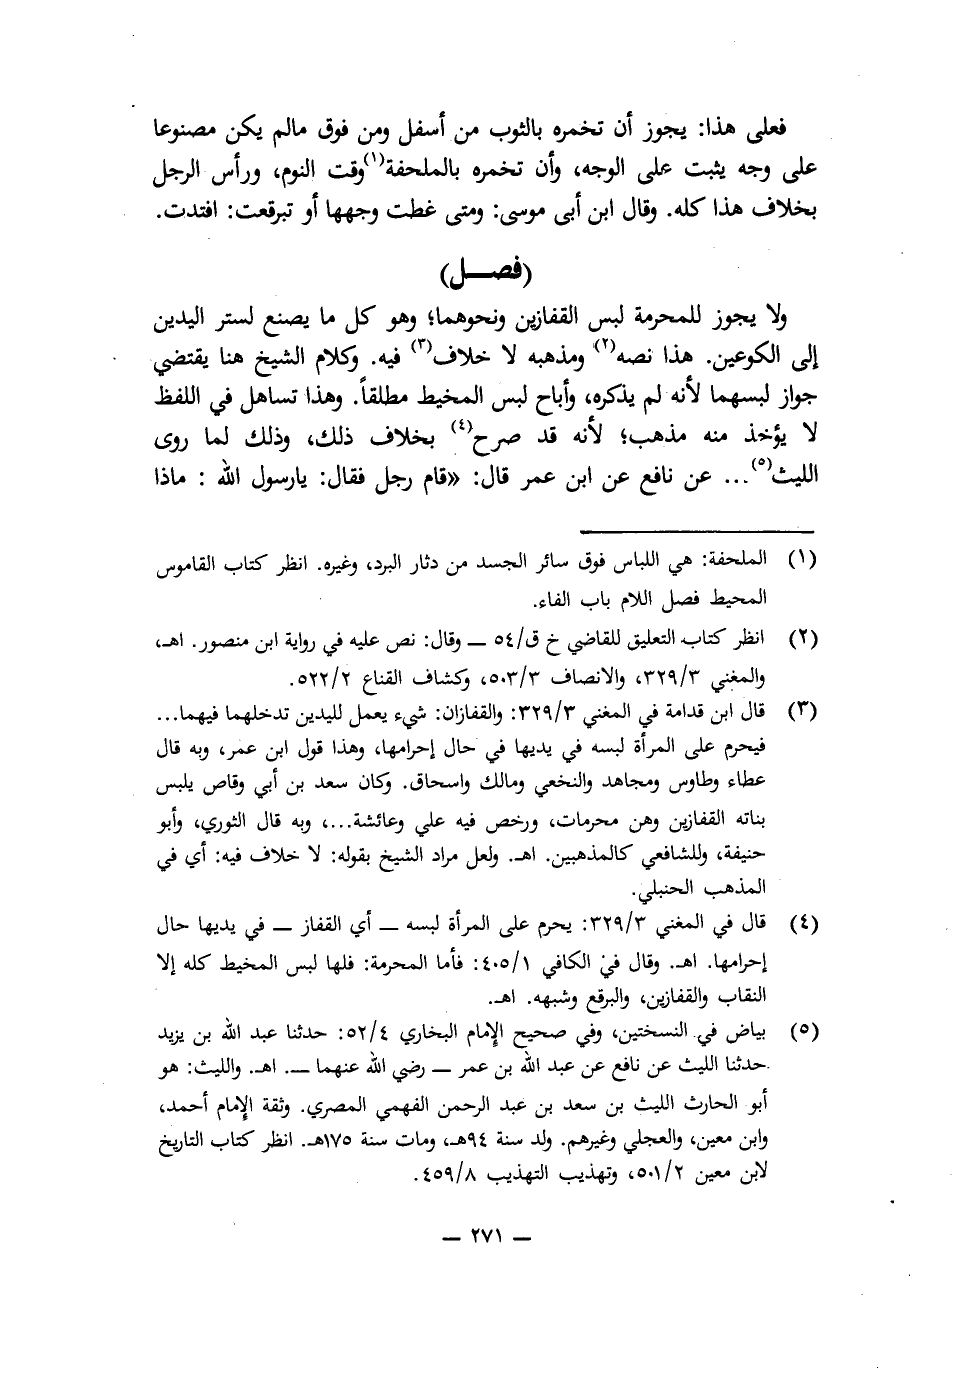 فعلى هذا: يجوز أن تخمره بالثوب من أسفل ومن فوق مالم يكن مصنوعا
على وجه يثبت على الوجه، وأن تخمره بالملحفة(١) وقت النوم، ورأس الرجل
بخلاف هذا كله. وقال ابن أبى موسى: ومتى غطت وجهها أو تبرقعت: افتدت.
(فصـــل)
ولا يجوز للمحرمة لبس القفازين ونحوهما؛ وهو كل ما يصنع لستر اليدين
إلى الكوعين. هذا نصه(٢) ومذهبه لا خلاف(٣) فيه. وكلام الشيخ هنا يقتضي
جواز لبسهما لأنه لم يذكره، وأباح لبس المخيط مطلقاً. وهذا تساهل في اللفظ
لا يؤخذ منه مذهب؛ لأنه قد صرح(٤) بخلاف ذلك، وذلك لما روى
الليث(٥)... عن نافع عن ابن عمر قال: «قام رجل فقال: يارسول الله : ماذا
(١) الملحفة: هي اللباس فوق سائر الجسد من دثار البرد، وغيره. انظر كتاب القاموس
المحيط فصل اللام باب الفاء.
(٢) انظر كتاب التعليق للقاضي خ ق/٥٤ ــ وقال: نص عليه في رواية ابن منصور. اهـ،
والمغني ٣٢٩/٣، والانصاف ٥٠٣/٣، وكشاف القناع ٥٢٢/٢.
(٣) قال ابن قدامة في المغني ٣٢٩/٣: والقفازان: شيء يعمل لليدين تدخلهما فيهما...
فيحرم على المرأة لبسه في يديها في حال إحرامها، وهذا قول ابن عمر، وبه قال
عطاء وطاوس ومجاهد والنخعي ومالك واسحاق. وكان سعد بن أبي وقاص يلبس
بناته القفازين وهن محرمات، ورخص فيه علي وعائشة...، وبه قال الثوري، وأبو
حنيفة، وللشافعي كالمذهبين. اهـ. ولعل مراد الشيخ بقوله: لا خلاف فيه: أي في
المذهب الحنبلي.
(٤) قال في المغني ٣٢٩/٣: يحرم على المرأة لبسه ــ أي القفاز ــ في يديها حال
إحرامها. اهـ. وقال في الكافي ٤٠٥/١: فأما المحرمة: فلها لبس المخيط كله إلا
النقاب والقفازين، والبرقع وشبهه. اهـ.
(٥) بياض في النسختين، وفي صحيح الإمام البخاري ٥٢/٤: حدثنا عبد الله بن يزيد
حدثنا الليث عن نافع عن عبد الله بن عمر ــ رضي الله عنهما ــ. اهـ. والليث: هو
أبو الحارث الليث بن سعد بن عبد الرحمن الفهمي المصري. وثقة الإمام أحمد،
وابن معين، والعجلي وغيرهم. ولد سنة ٩٤هـ، ومات سنة ١٧٥هـ. انظر كتاب التاريخ
لابن معين ٥٠١/٢، وتهذيب التهذيب ٤٥٩/٨.
ــ ٢٧١ ــ